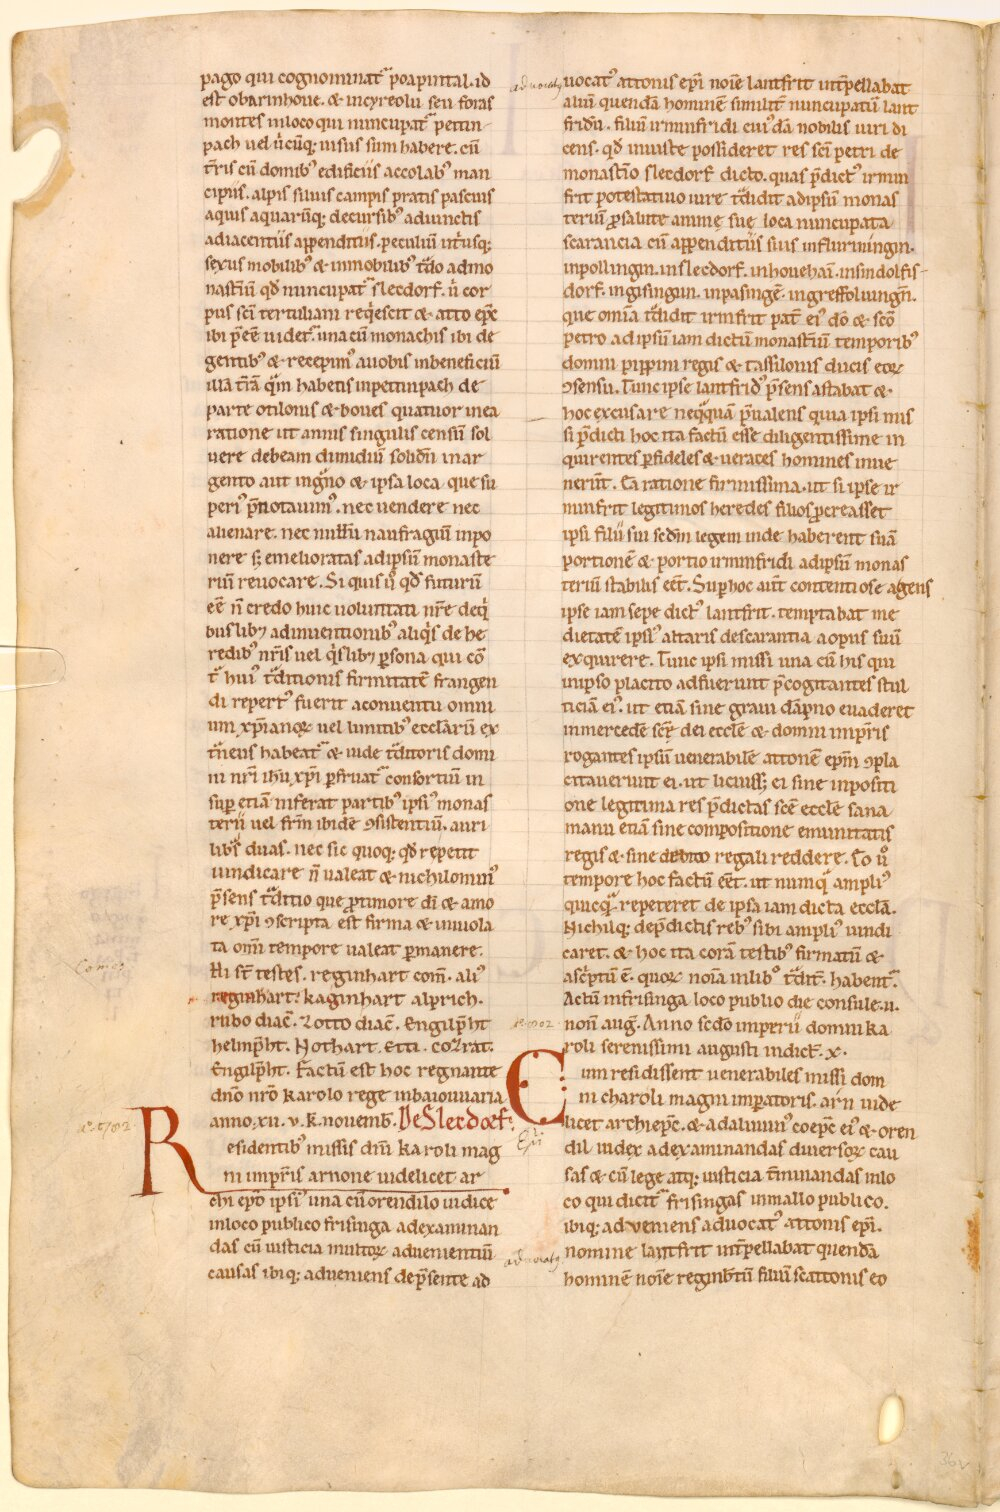 pago qui cognominat᷑ poapintal. id
est obarinhoue. & incyreolu seu foras
montes inloco qui nuncupat᷑ pettin-
pach vel ů cūq; uisus sum habere. cū
t̄ris cū domibꝰ edificiis accolabꝰ man
cipiis. alpis siluis campis pratis pascuis
aquis aquarūq; decursibꝰ adiunctis
adiacentiis appenditiis. peculiū ut̄usq;
sexus mobilibꝰ & inmobilibꝰ t̄do admo
nastiū qđ nuncupat᷑ slecdorf. ů cor
pus scī tertuliani req̇escit & atto ep̄c
ibi p̄eē uidet᷑. una cū monachis ibi de
gentibꝰ & recepimꝰ auobis inbeneficiū
illā t̄rā q̄m habetis inpettinpach de
parte otilonis & boues quatuor inea
ratione ut annis singulis censū sol
uere debeam dimidiū solidū in ar
gento aut ing̊no & ipsa loca que su
periꝰ p̄notauimꝰ. nec uendere nec
alienare. nec nullū naufragiū inpo
nere s; emelioratas adipsū monaste
riū reuocare. Si quis ů qđ futurū
eē n̄ credo huic uoluntati nr̄e deq̇
buslibꝫ adinuentionibꝰ aliq̇s de he
redibꝰ nr̄is uel q̇slibꝫ ꝑsona qui cō
t᷑ huiꝰ t̄ditionis firmitatē frangen
di repertꝰ fuerit aconuentu omni
um xp̄ianoꝝ vel limitibꝰ ecclārū ex
t̄neus habeat᷑ & iude t̄ditoris domi
ni nr̄i ihu xp̄i ꝑfruat᷑ consortiū in
suꝑ etiā inferat partibꝰ ipsiꝰ monas
terii vel fr̄m ibidē ꝯsistentiū. auri
libꝰs duas. nec sic quoq; qđ repetit
uindicare n̄ ualeat & nichilominꝰ
p̄sens t̄ditio que ꝓ timore dī & amo
re xp̄i ꝯscripta est firma & inuiola
ta om̄i tempore ualeat ꝑmanere.
Hi st̄ testes. reginhart com̄. aliꝰ
reginhart. kaginhart alprich.
rubo diac̄. Zotto diac̄. Engilp̄ht
helmp̄ht. Nothart. Etti. cozrat.
Engilp̄ht. Factū est hoc regnante
dn̄o nr̄o karolo rege inbaiouuaria
anno. xii. v. k. nouemb̄. De Slecdorf.
Residentibꝰ missis dn̄i karoli mag
ni imp̄ris arnone uidelicet ar
chi ep̄o ipsiꝰ una cū orendilo iudice
inloco publico frisinga adexaminan
das cū iusticia multoꝝ aduenientiū
causas ibiq; adueniens dep̄sente ad
uocatꝰ attonis ep̄i noīe lantfrit int̄pellabat
aliū quendā hominē similit̄ nuncupatū lant
fridū. filiū irminfridi cuiꝰdā nobilis uiri di
cens. qđ iniuste possideret res scī petri de
monast̄io slecdorf dicto. quas p̄dictꝰ irmin
frit potestatiuo iure t̄didit adipsū monas
teriū ꝓ salute animę suę loca nuncupata
scarancia cū appenditiis suis influriningin.
inpollingin. inslecdorf. inhouehai. insindolfis-
dorf. ingisingun. inpasingē. ingreffoluingn̄.
que omīa t̄didit irmfrit pat̄ eiꝰ dō & scō
petro adipsū iam dictū monastiū temporibꝰ
domni pippini regis & tassilonis ducis eoꝝ
ꝯsensu. Tunc ipse lantfridꝰ p̄sens astabat &
hoc excusare neq̄quā p̄ualens quia ipsi mis
si p̄dicti hoc ita factū esse diligentissime in
quirentes ꝑ fideles & ueraces homines inue
nerūt. Ea ratione firmissima. ut si ipse ir
minfrit legitimos heredes filios ꝓcreasset
ipsi filii sui sedm legem inde haberent suā
portionē & portio irminfridi adipsū monas
teriū stabilis eēt. Suꝑ hoc aūt contentiose agens
ipse iam sepe dictꝰ lantfrit. temptabat me
dietatē ipsiꝰ altaris descarantia aopus suū
exquirere. Tunc ipsi missi una cū his qui
inipso placito adfuerunt p̄cogitantes stul
ticiā eiꝰ. ut etiā sine graui dāpno euaderet
inmercedē scę dei eccle & domni imp̄ris
rogantes ipsū uenerabilē attonē ep̄m ꝯpla
citauerunt ei. ut licuiss; ei sine inpositi
one legitima res p̄dictas scē eccle sana
manu etiā sine compositione emunitatis
regis & sine debito regali reddere. Eo ů
tempore hoc factū eēt. ut numq̄ ampliꝰ
quicq̄ repeteret de ipsa iam dicta ecclā.
Nichilq; dep̄dictis rebꝰ sibi ampliꝰ uindi
caret. & hoc ita corā testibꝰ firmatū &
asc̄ptū ē. quoꝝ noīa inlibꝰ t̄dit̄. habent᷑.
Actū infrisinga loco publio die consule. ii.
non̄ aug̃. Anno sc̄do imperii domni ka
roli serenissimi augusti indict̄. x.
Cum residissent uenerabiles missi dom
ni charoli magni imp̄atoris. arn uide
licet archiep̄c. & adaluuinꝰ coep̄c eiꝰ & oren
dil iudex adexaminandas diuersoꝝ cau
sas & cū lege atq; iusticia t̄minandas inlo
co qui dicit᷑ frisingas inmallo publico.
ibiq; adueniens aduocatꝰ attonis ep̄i.
nomine lantfrit int̄pellabat quendā
hominē noīe reginb̄tū filiū scattonis eo
advocatꝰ
Comes
advocatꝰ
36v